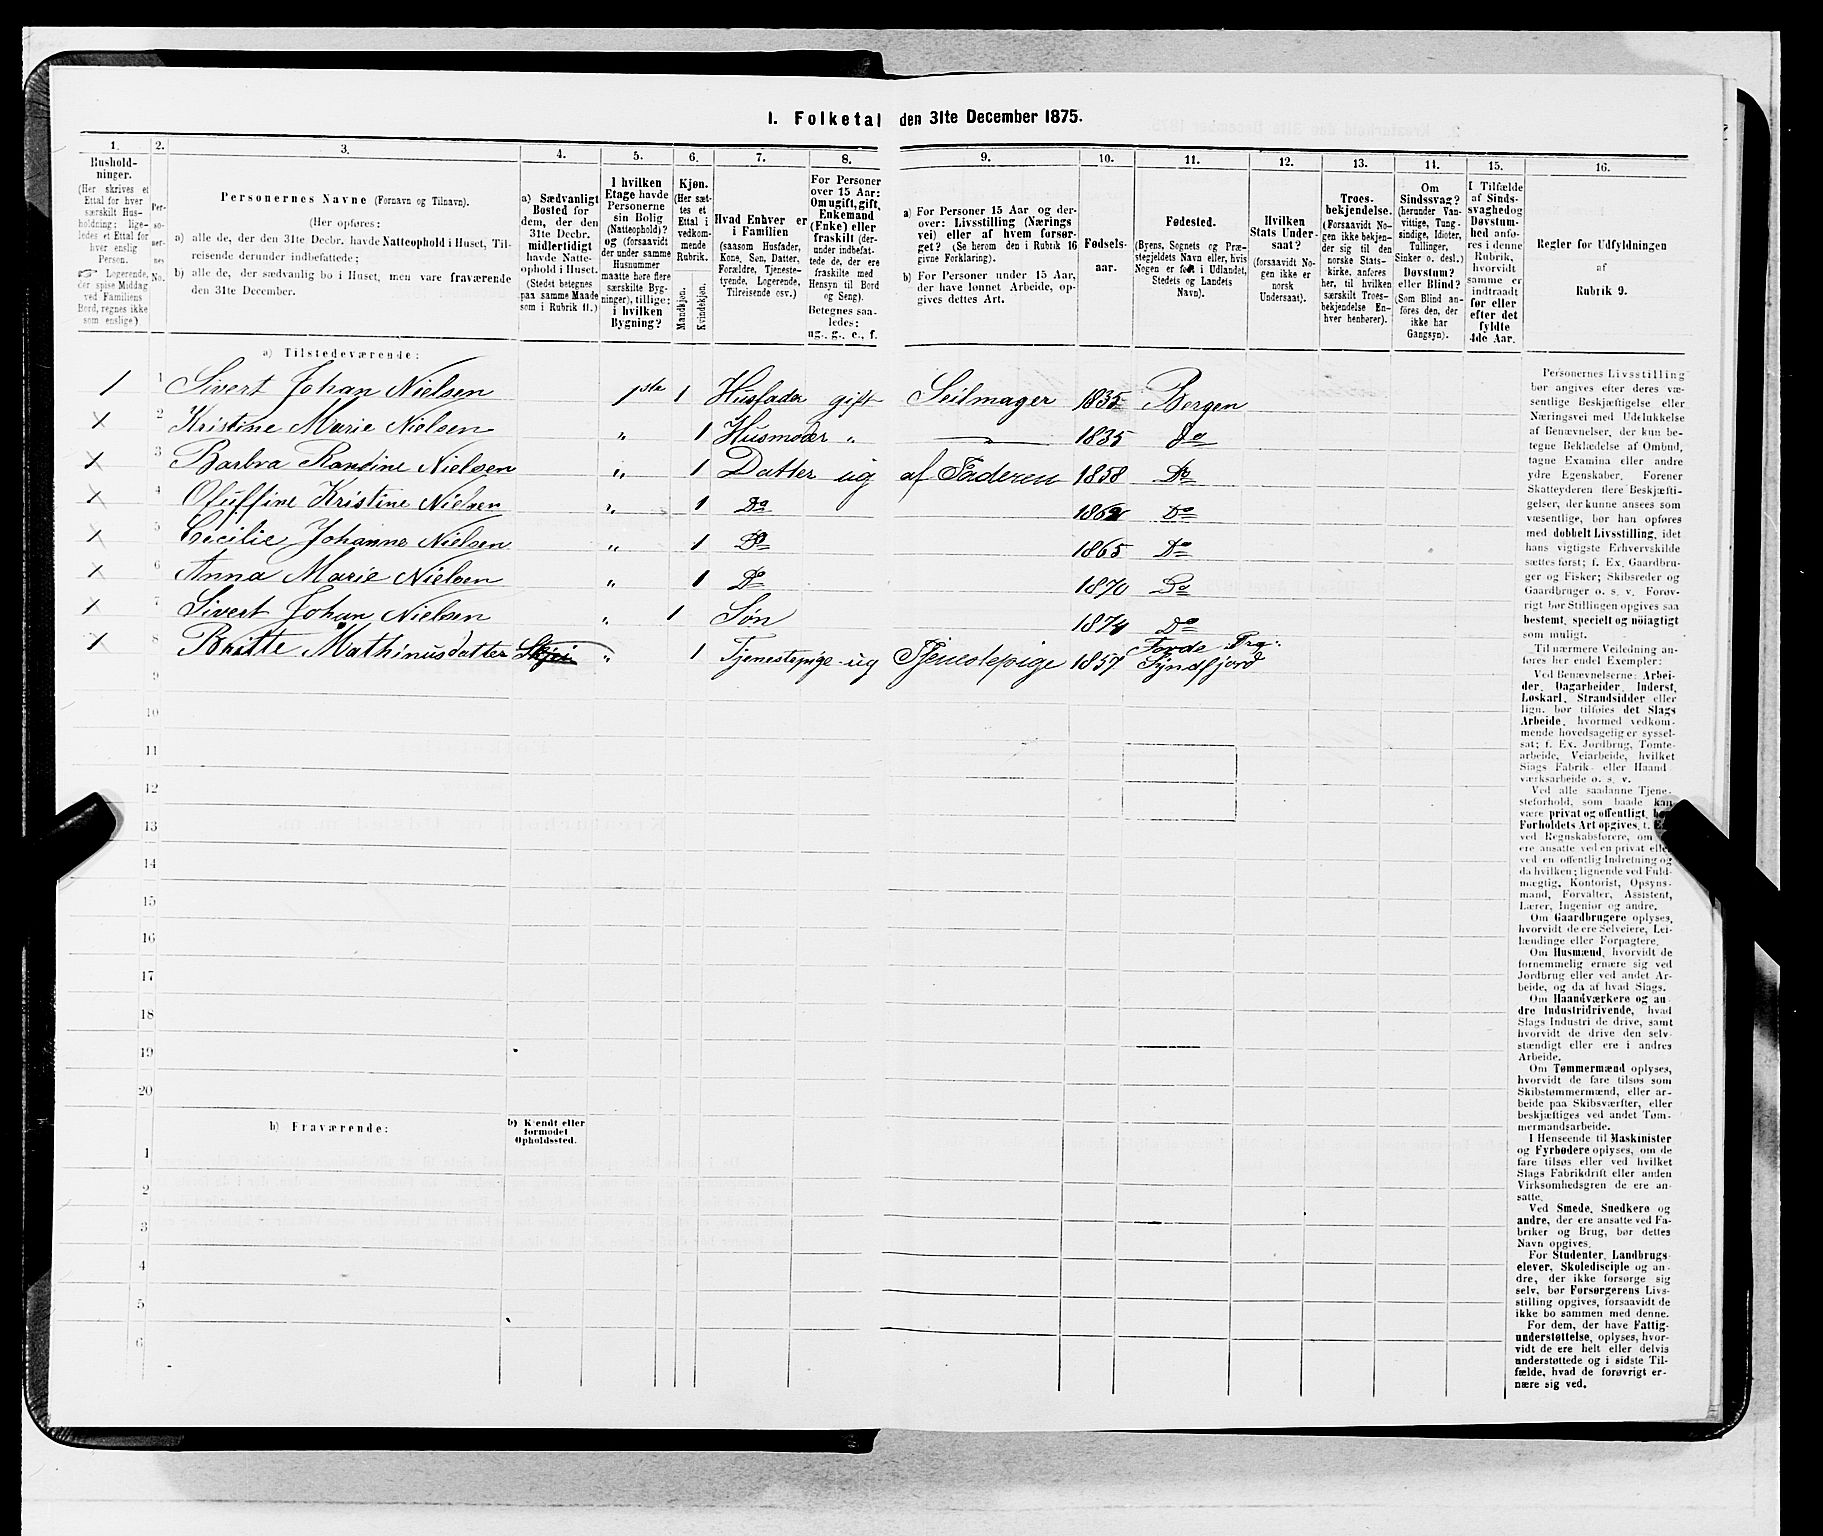 1. Folketal den 31te December 1875.
1.
Husholdninger.
(Her skrives et
Ettal for hver
særskilt Husholdning; ligeledes et Ettal for
hver enslig
Person.
☞ Logerende,
der spise Middag
ved Familiens
Bord, regnes ikke
som enslige.)
2.
Personernes
No.
3.
Personernes Navne (Fornavn og Tilnavn).
(Her opføres:
a) alle de, der den 31te Decbr. havde Natteophold i Huset, Tilreisende derunder indbefattede;
b) alle de, der sædvanlig bo i Huset, men vare fraværende
den 31te December.
4.
a) Sædvanligt
Bosted for
dem, der den
31te Decbr.
midlertidigt
havde Natteophold i Huset.
(Stedet betegnes
paa samme Maade
som i Rubrik 11.)
5.
I hvilken
Etage havde
Personerne
sin Bolig
(Natteophold)?
og (forsaavidt
der under samme
Husnummer
maatte høre flere
særskilte Bygninger), tillige:
i hvilken
Bygning?
6.
Kjøn.
(Her sættes et
Ettal i
vedkommende
Rubrik.
Mandkjøn.
Kvindekjøn.
7.
Hvad Enhver er
i Familien
(saasom Husfader,
Kone, Søn, Datter,
Forældre, Tjenestetyende, Logerende,
Tilreisende osv.)
8.
For Personer
over 15 Aar:
Om ugift, gift,
Enkemand
(Enke) eller
fraskilt (derunder indbefattede de, der ere
fraskilte med
Hensyn til Bord
og Seng).
Betegnes saaledes:
ug., g., e., f.
9.
a) For Personer 15 Aar og derover: Livsstilling (Næringsvei) eller af hvem forsørget? (Se herom den i Rubrik 16
givne Forklaring).
b) For Personer under 15 Aar,
der have lønnet Arbeide, opgives dettes Art.
10.
Fødselsaar.
11.
Fødested.
(Byens, Sognets og Præstegjeldets Navn eller, hvis
Nogen er født i Udlandet,
Stedets og Landets
Navn).
12.
Hvilken
Stats Undersaat?
(forsaavidt Nogen ikke er
norsk
Undersaat).
13.
Troesbekjendelse.
(Forsaavidt Nogen ikke bekjender sig til den
norske Statskirke, anføres
her, til hvilken
særskilt Troesbekjendelse Enhver henhører).
14.
Om
Sindssvag?
(herunder Vanvittige, Tungsindige, Idioter,
Tullinger,
Sinker o. desl.)
Døvstum?
eller Blind?
(Som Blind anføres den, der
ikke har
Gangsyn).
15.
I Tilfælde
af Sindssvaghed og
Døvstumhed anføres i denne
Rubrik,
hvorvidt
samme er
indtraadt
før eller
efter det
fyldte
4de Aar.
16.
Regler for Udfyldningen
af
Rubrik 9.
a) Tilstedeværende:
1 1 Sivert Johan Nielsen 1ste 1 Husfader gift Seilmager 1835 Bergen
1 2 Kristine Marie Nielsen " 1 Husmoder " — 1835 Do
1 3 Barbra Randine Nielsen " 1 Datter ug af Faderen 1858 Do
1 4 Oluffine Kristine Nielsen " 1 Do 1862 Do
1 5 Cicilie Johanne Nielsen " 1 Do 1865 Do
1 6 Anna Marie Nielsen " 1 Do 1870 Do
1 7 Sivert Johan Nielsen " 1 Søn 1874 Do
1 8 Britte Mathinusdatter Skjei " 1 Tjenestepige ug Tjenestepige 1857 Førde Prg:
Syndfjord
9
10
11
12
13
14
15
16
17
18
19
20
b) Fraværende:
b) Kjendt eller
formodet
Opholdssted.
1
2
3
4
5
6
Personernes Livsstilling
bør angives efter deres væsentlige Beskjæftigelse eller
Næringsvei med Udelukkelse
af Benævnelser, der kun betegne Beklædelse af Ombud,
tagne Examina eller andre
ydre Egenskaber. Forener
Skatteyderen flere Beskjæftigelser, der kunne ansees som
væsentlige, bør han opføres
med dobbelt Livsstilling, idet
hans vigtigste Erhvervskilde
sættes først; f. Ex. Gaardbruger og Fisker; Skibsreder og
Gaardbruger o. s. v. Forøvrigt bør Stillingen opgives saa
bestemt, specielt og nöiagtigt
som muligt.
Til nærmere Veiledning anføres her endel Exempler:
Ved Benævnelserne: Arbeider, Dagarbeider, Inderst,
Løskarl, Strandsidder eller
lign. bør tilføies det Slags
Arbeide, hvormed vedkommende hovedsagelig er sysselsat; f. Ex. Jordbrug, Tomtearbeide, Veiarbeide, hvilket
Slags Fabrik- eller Haandværksarbeide o. s. v.
Ved alle saadanne Tjenesteforhold, som baade kan
være privat og offentligt, bør
Forholdets Art opgives, t. Ex.
ved Regnskabsførere, om de
ere ansatte ved en privat eller
ved en offentlig Indretning og
da hvilken; lignende ved Fuldmægtig, Kontorist, Opsynsmand, Forvalter, Assistent,
Lærer, Ingeniør og andre.
Om Gaardbrugere oplyses,
hvorvidt de ere Selveiere, Leilændinge eller Forpagtere.
Om Husmænd, hvorvidt de
fornemmelig ernære sig ved
Jordbrug eller ved andet Arbeide, og da af hvad Slags.
Om Haandværkere og andre Industridrivende, hvad
Slags Industri de drive, samt
hvorvidt de drive den selvstændigt eller ere i andres
Arbeide.
Om Tømmermænd oplyses,
hvorvidt de fare tilsøs som
Skibstømmermænd, eller arbeide paa Skibsværfter, eller
beskjæftiges ved andet Tømmermandsarbeide.
I Henseende til Maskinister
og Fyrbødere oplyses, om de
fare tilsøs eller ved hvilket
Slags Fabrikdrift eller anden
Virksomhedsgren de ere ansatte.
Ved Smede, Snedkere og
andre, der ere ansatte ved Fabriker og Brug, bør dettes
Navn opgives.
For Studenter, Landbrugselever, Skoledisciple og andre, der ikke forsørge sig
selv, bør Forsørgerens Livsstilling opgives, forsaavidt de
ikke bo sammen med denne.
For dem, der have Fattigunderstøttelse, oplyses, hvorvidt de ere helt eller delvis
understøttede og i sidste Tilfælde, hvad de forøvrigt ernære sig ved.